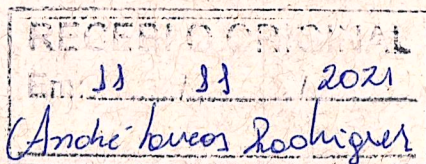 RECEBI O ORIGINAL
Em: 11 / 11 / 2021
André Rodrigues